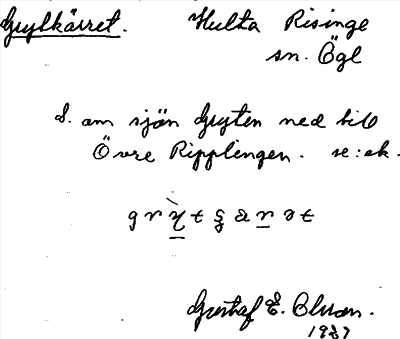 Grytkärret. Hulta Risinge
sn. Ögl
S. om sjön Gryten ned till
Övre Ripplengen. se: ek.
Gustaf E. Olsson.
1937